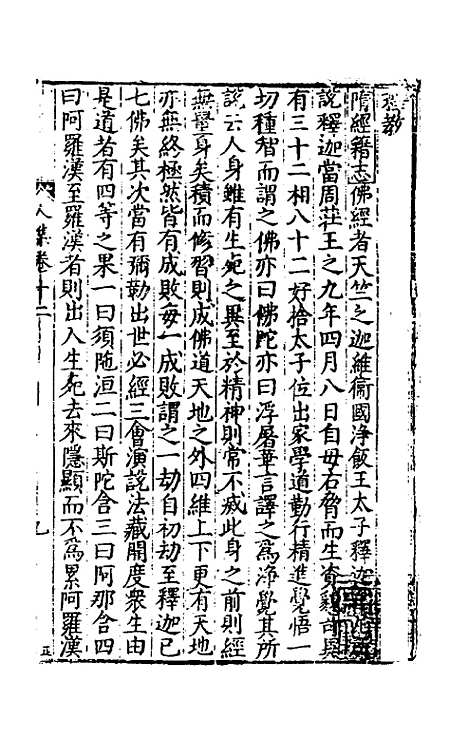 釋教
隋經籍志佛經者天竺之迦維衞國淨飯王太子釋迦
說釋迦當周莊王之九年四月八日自母右脅而生資貌奇異
有三十二相八十二好捨太子位出家學道勤行精進覺悟一
切種智而謂之佛亦曰佛陀亦曰浮屠華言譯之為淨覺其所
說云人身雖有生死之異至於精神則常不滅此身之前則經
無量身矣積而修習則成佛道天地之外四維上下更有天地
亦無終極然皆有成敗每一成敗謂之一劫自初劫至釋迦已
七佛矣其次當有彌勒出世必經三會演說法藏開度衆生由
是道者有四等之果一曰須陁洹二曰斯陀含三曰阿那含四
曰阿羅漢至羅漢者則出入生死去來隱顯而不為累阿羅漢
人集卷十二
九